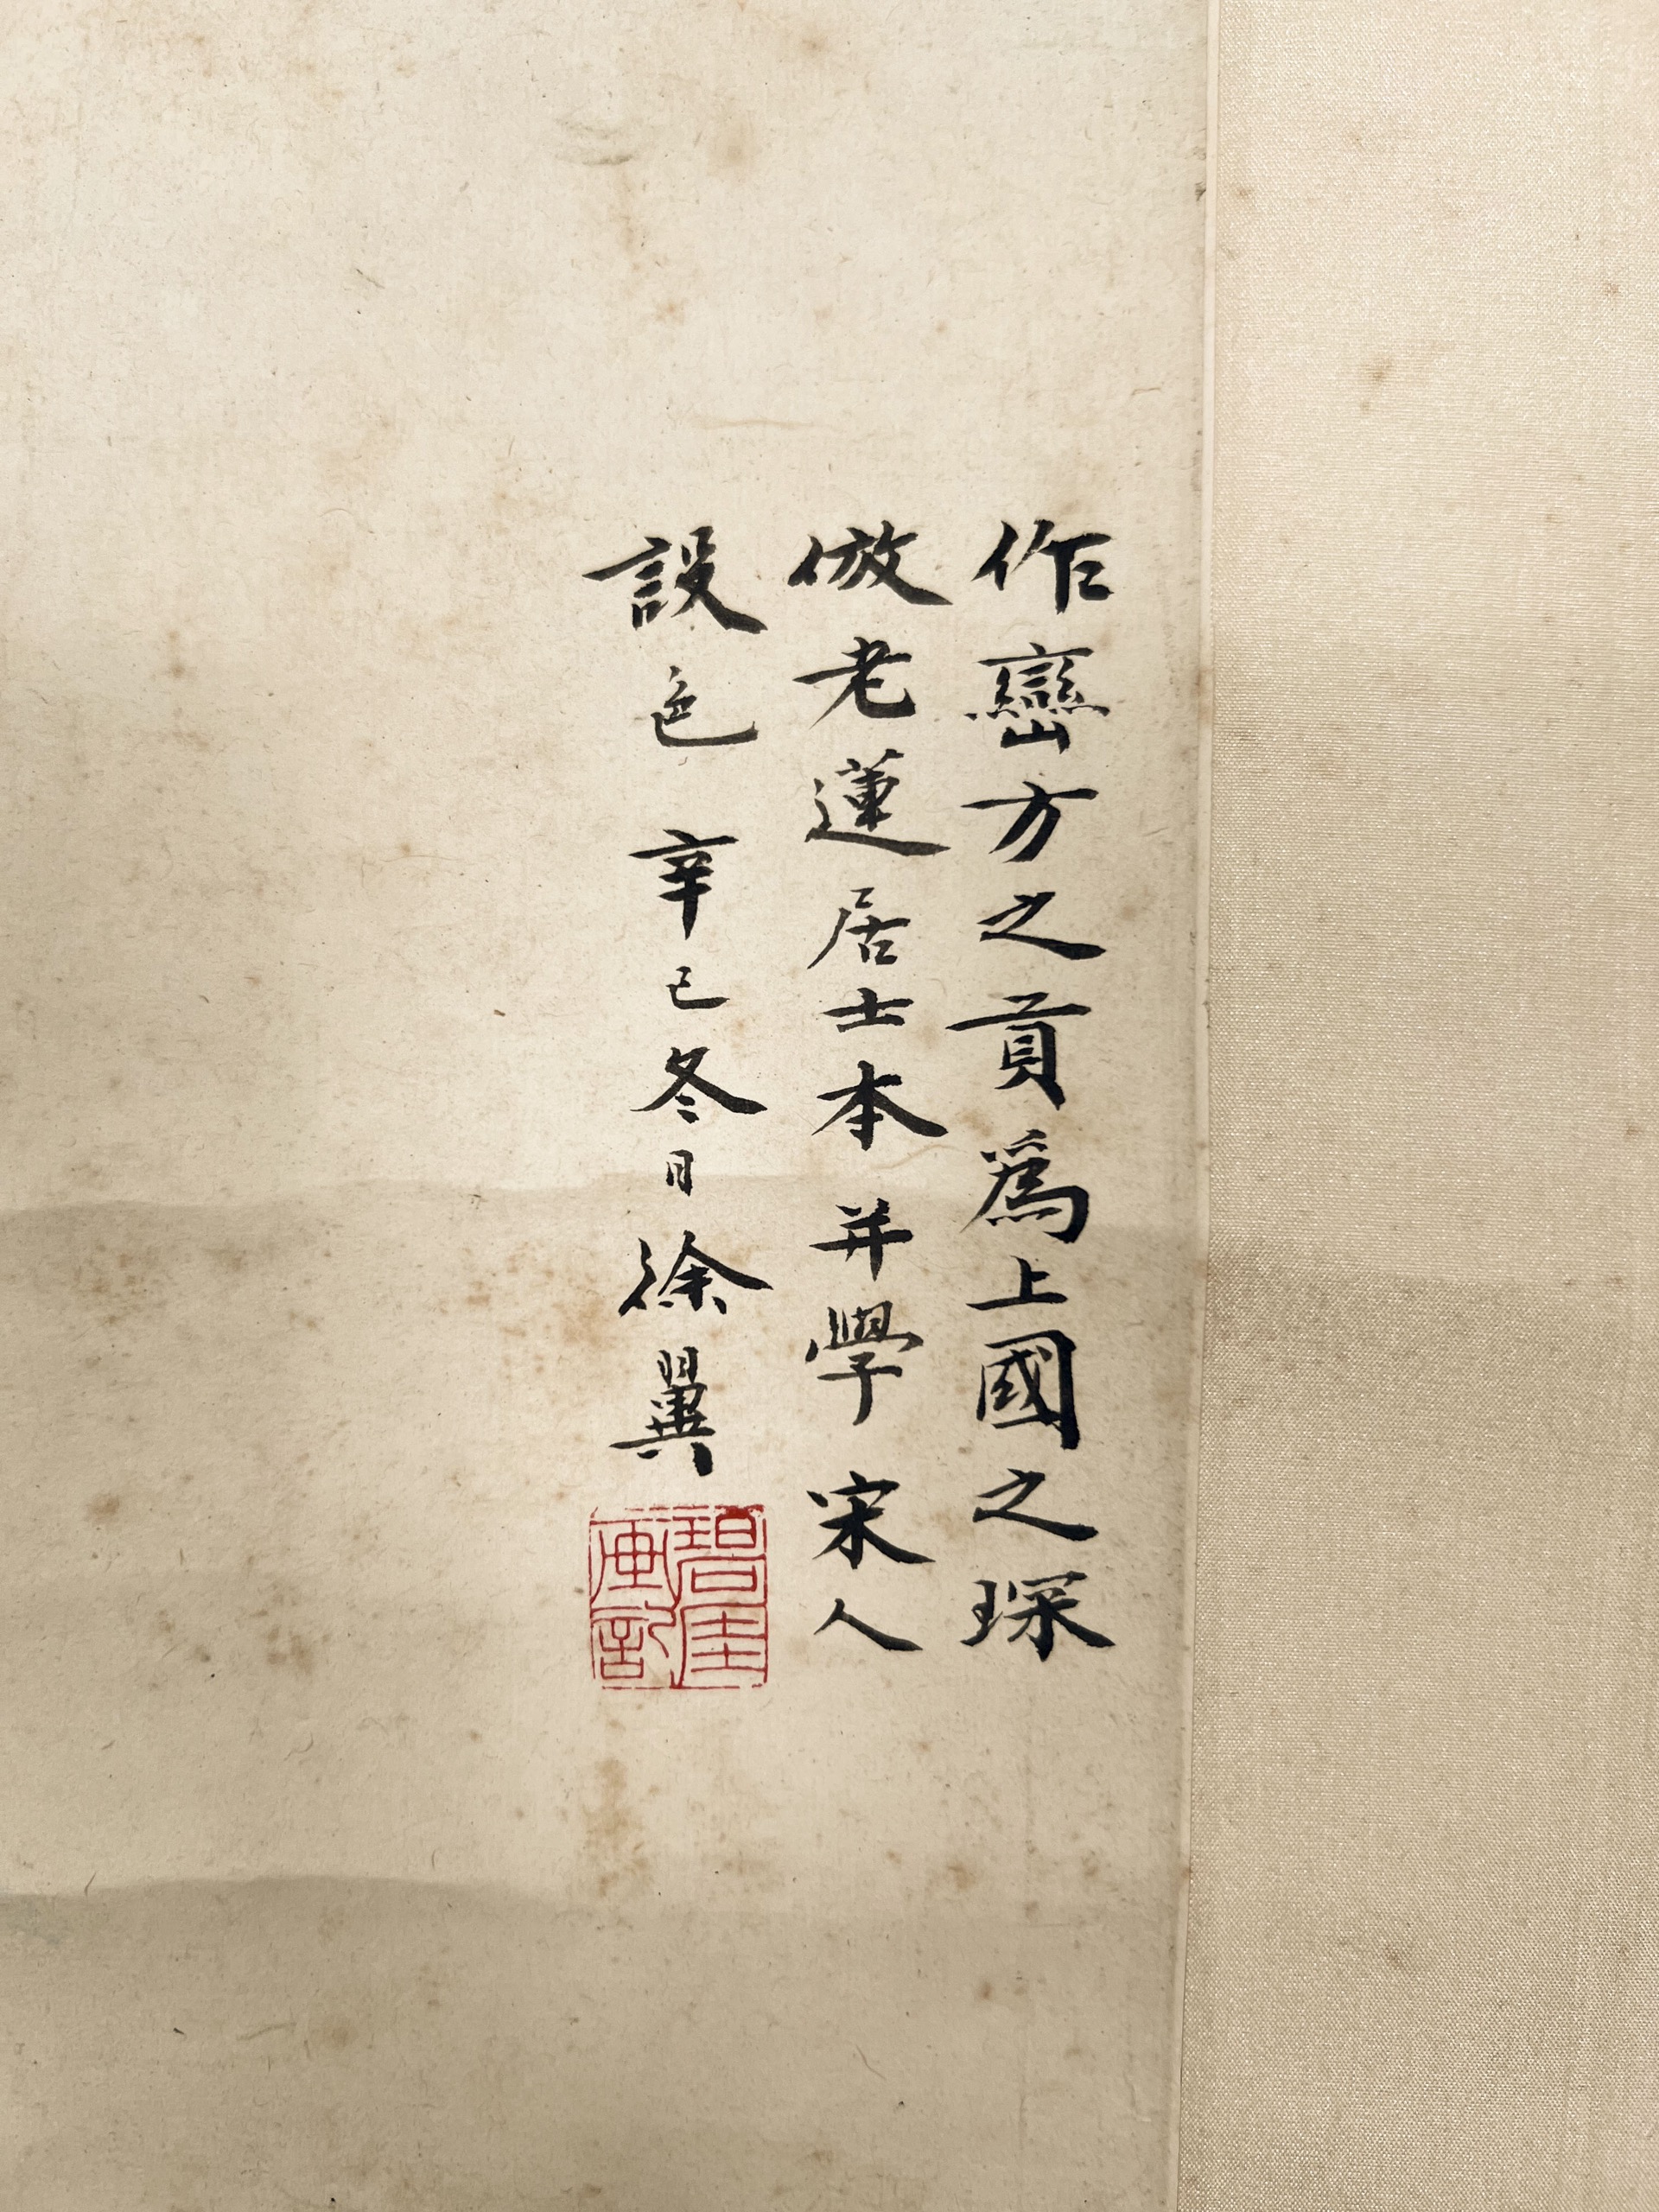 作巒方之貢爲上國之琛
倣老蓮居士本并學宋人
設色 辛巳冬日徐翼